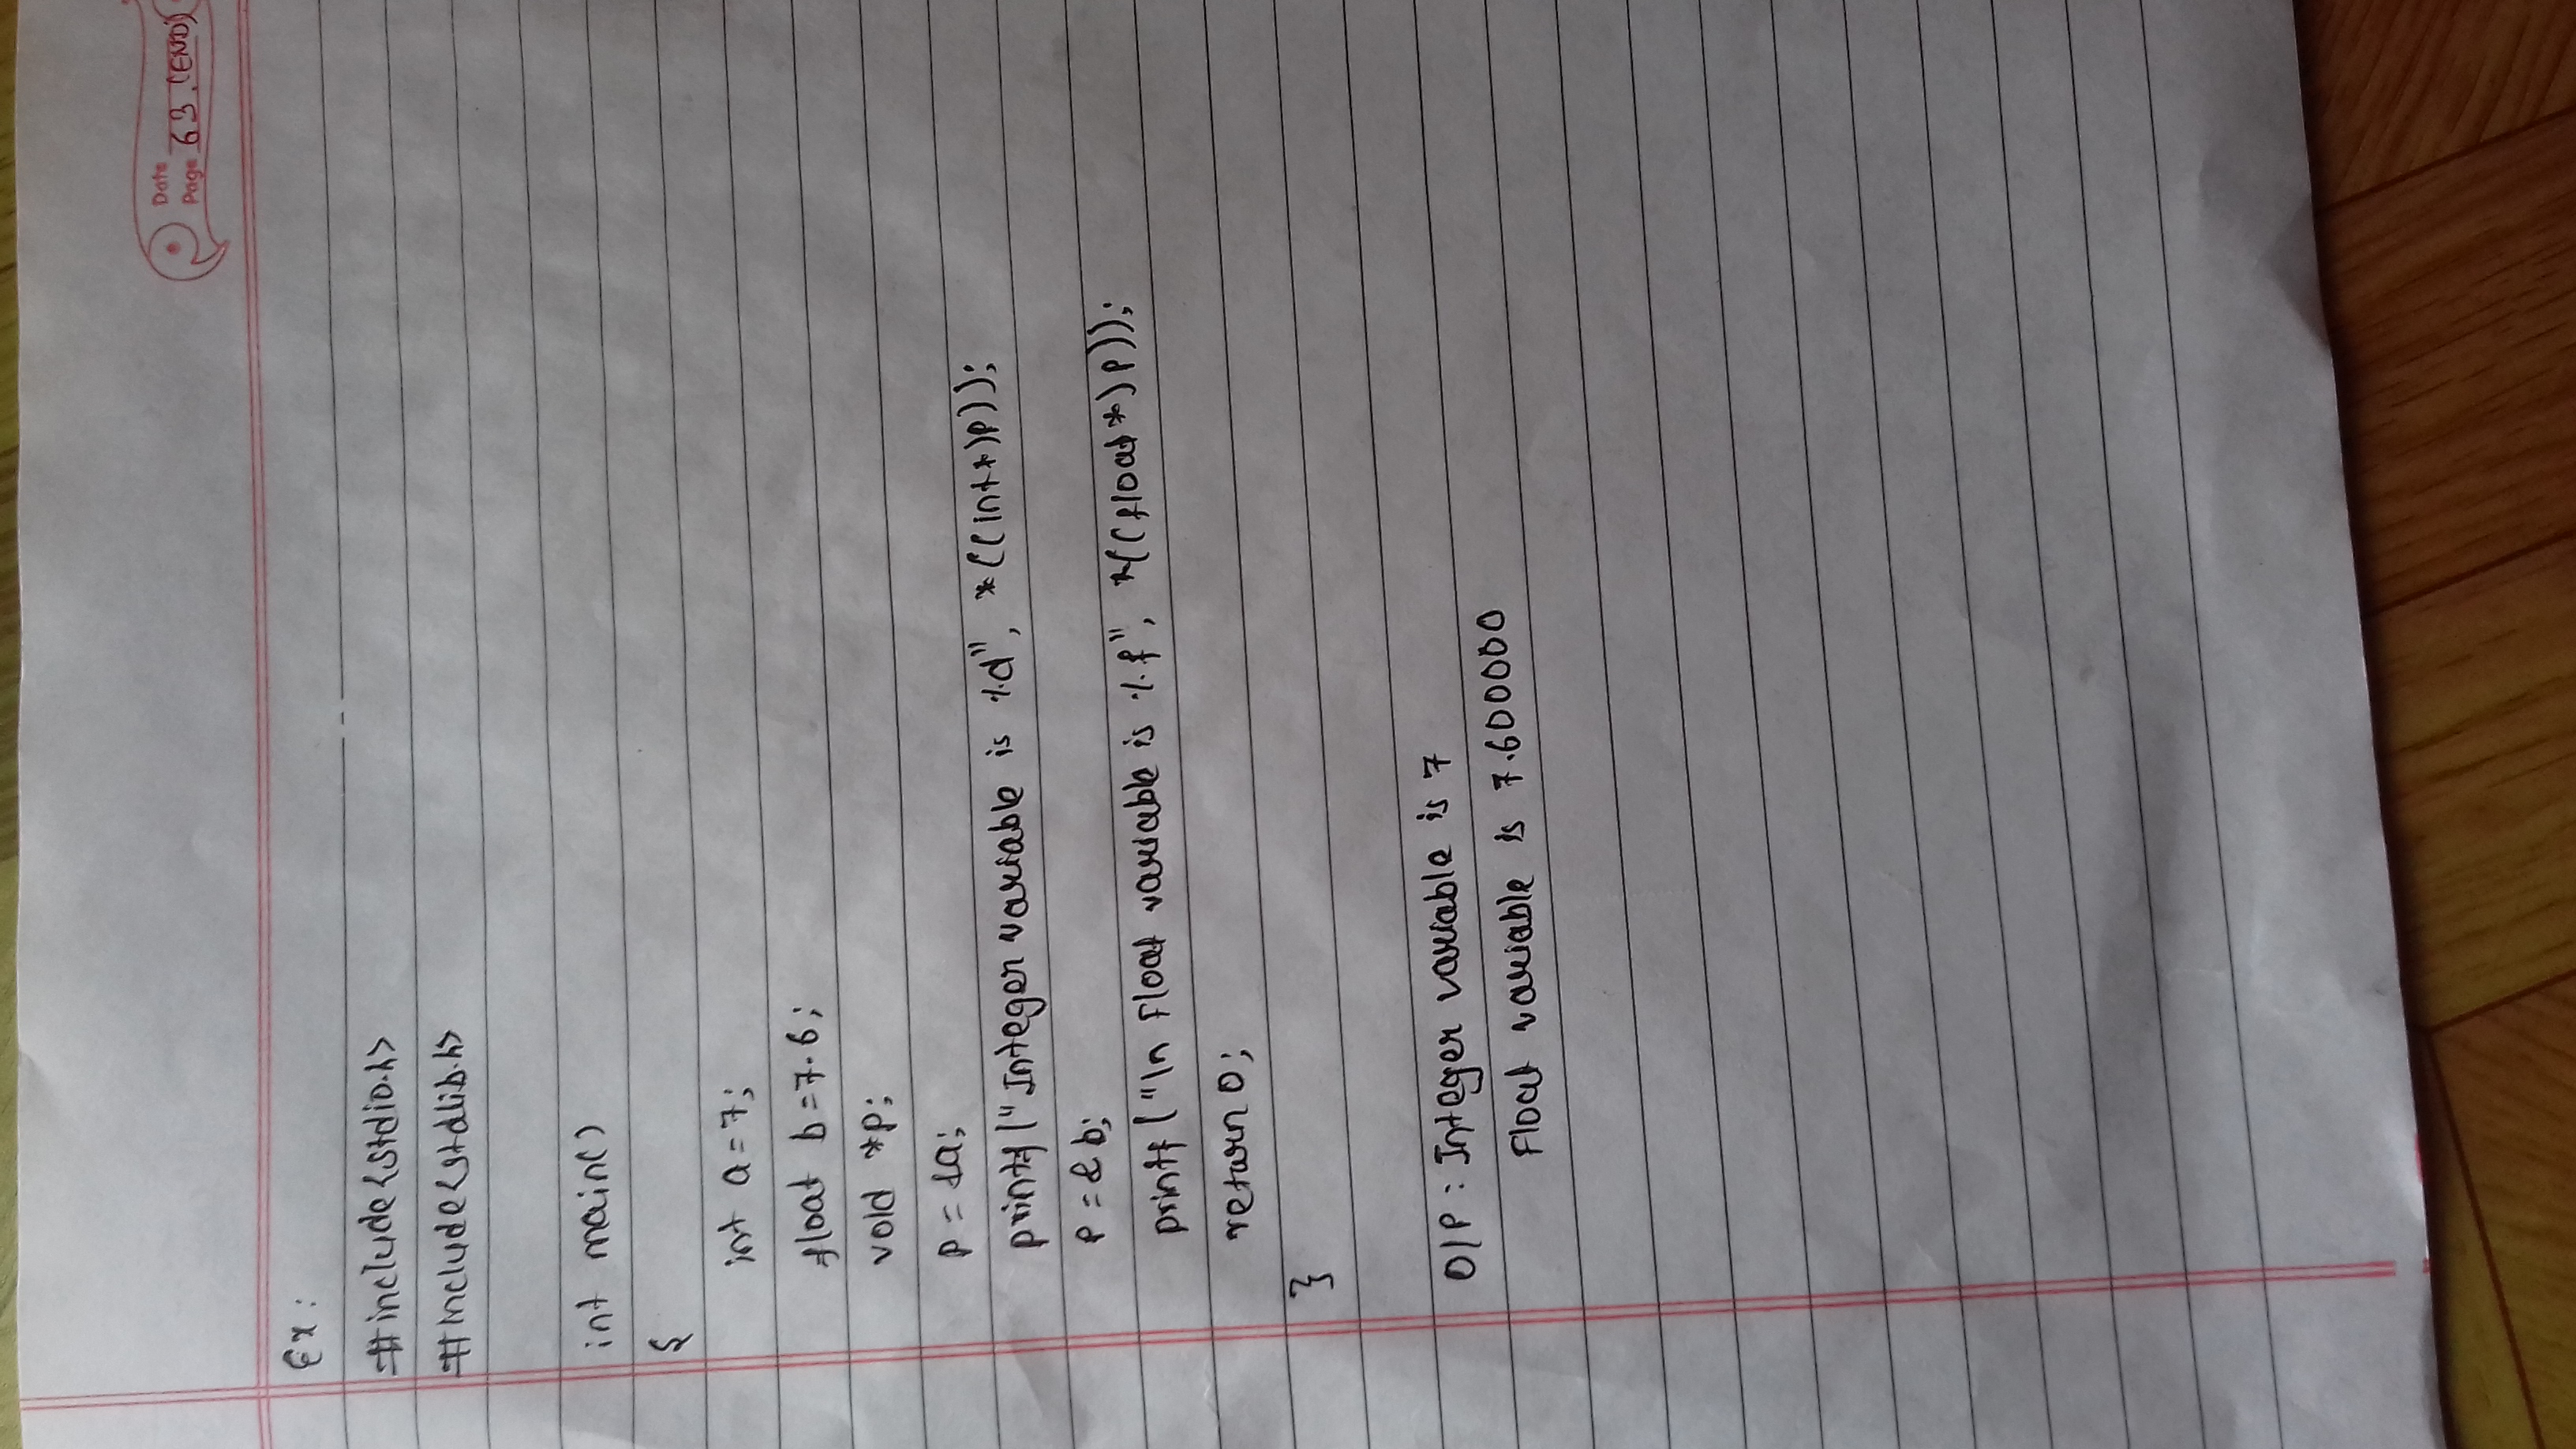 Date
Page 63.(END)
Ex:
#include<stdio.h>
#include<stdlib.h>
int main()
{
int a=7;
float b=7.6;
void *p;
p = &a;
printf("Integer variable is %d", *((int*)p));
p = &b;
printf("\n Float variable is %f", *((float*)p));
return 0;
}
O/P : Integer variable is 7
Float variable is 7.600000